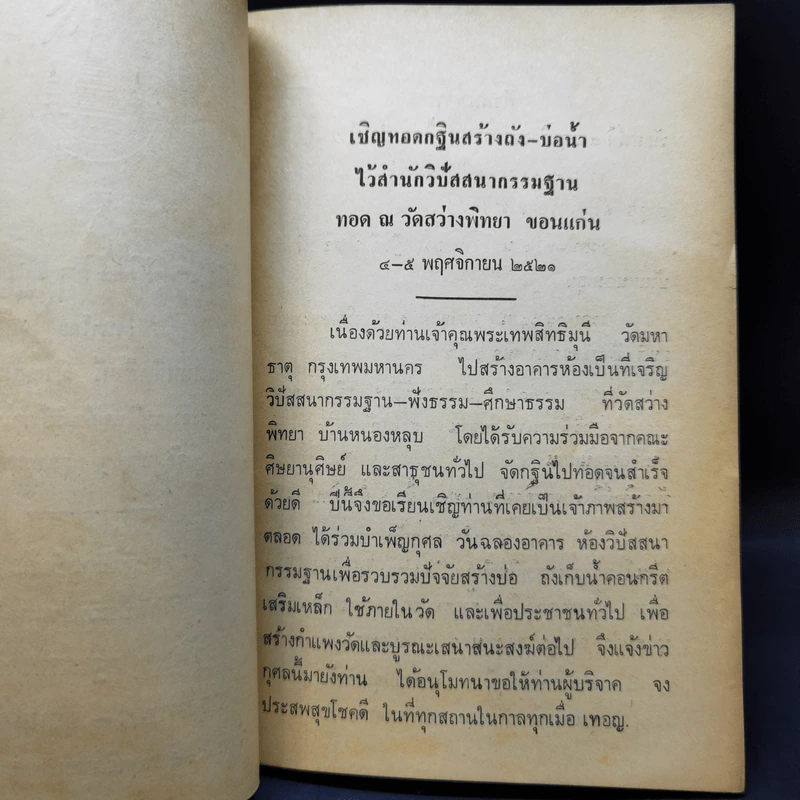 เชิญทอดกฐินสร้างถัง-บ่อน้ำ
ไว้สำนักวิปัสสนากรรมฐาน
ทอด ณ วัดสว่างพิทยา ขอนแก่น
๔-๕ พฤศจิกายน ๒๕๒๑
เนื่องด้วยท่านเจ้าคุณพระเทพสิทธิมุนี วัดมหา
ธาตุ กรุงเทพมหานคร ไปสร้างอาคารห้องเป็นที่เจริญ
วิปัสสนากรรมฐาน—ฟังธรรม—ศึกษาธรรม ที่วัดสว่าง
พิทยา บ้านหนองหลุบ โดยได้รับความร่วมมือจากคณะ
ศิษยานุศิษย์ และสาธุชนทั่วไป จัดกฐินไปทอดจนสำเร็จ
ด้วยดี ปีนี้จึงขอเรียนเชิญท่านที่เคยเป็นเจ้าภาพสร้างมา
ตลอด ได้ร่วมบำเพ็ญกุศล วันฉลองอาคาร ห้องวิปัสสนา
กรรมฐานเพื่อรวบรวมปัจจัยสร้างบ่อ ถังเก็บน้ำคอนกรีต
เสริมเหล็ก ใช้ภายในวัด และเพื่อประชาชนทั่วไป เพื่อ
สร้างกำแพงวัดและบูรณะเสนาสนะสงฆ์ต่อไป จึงแจ้งข่าว
กุศลนี้มายังท่าน ได้อนุโมทนาขอให้ท่านผู้บริจาค จง
ประสพสุขโชคดี ในที่ทุกสถานในกาลทุกเมื่อ เทอญ.